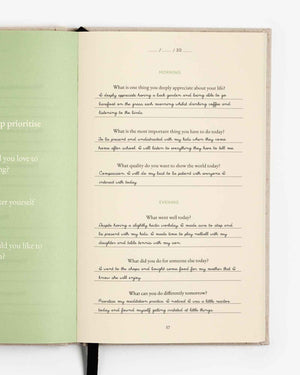 p prioritise
d you love to
ng?
ter yourself
uld you like to
n?
__ / __ / 20 __
MORNING
What is one thing you deeply appreciate about your life?
I deeply appreciate having a back garden and being able to go
barefoot on the grass each morning whilst drinking coffee and
listening to the birds.
What is the most important thing you have to do today?
To be present and undistracted with my kids when they come
home after school. I will listen to everything they have to tell me.
What quality do you want to show the world today?
Compassion. I will do my best to be patient with everyone I
interact with today.
EVENING
What went well today?
Despite having a slightly hectic workday, I made sure to stop and
be present with my kids. I made time to play netball with my
daughter and table tennis with my son.
What did you do for someone else today?
I went to the shops and bought some food for my mother that I
know she will enjoy.
What can you do differently tomorrow?
Prioritise my meditation practice. I noticed I was a little restless
today and found myself getting irritated at little things.
17